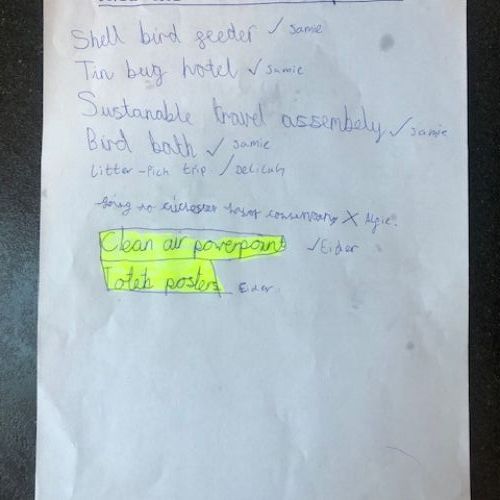 Shell bird feeder ✓ Samie
Tin bug hotel ✓ Samie
Sustanable travel assembely ✓ Samie
Bird bath ✓ Samie
Litter-Pick trip. ✓ Delilah
going to X Algie.
Clean air powerpoint ✓ Eider
posters Eider